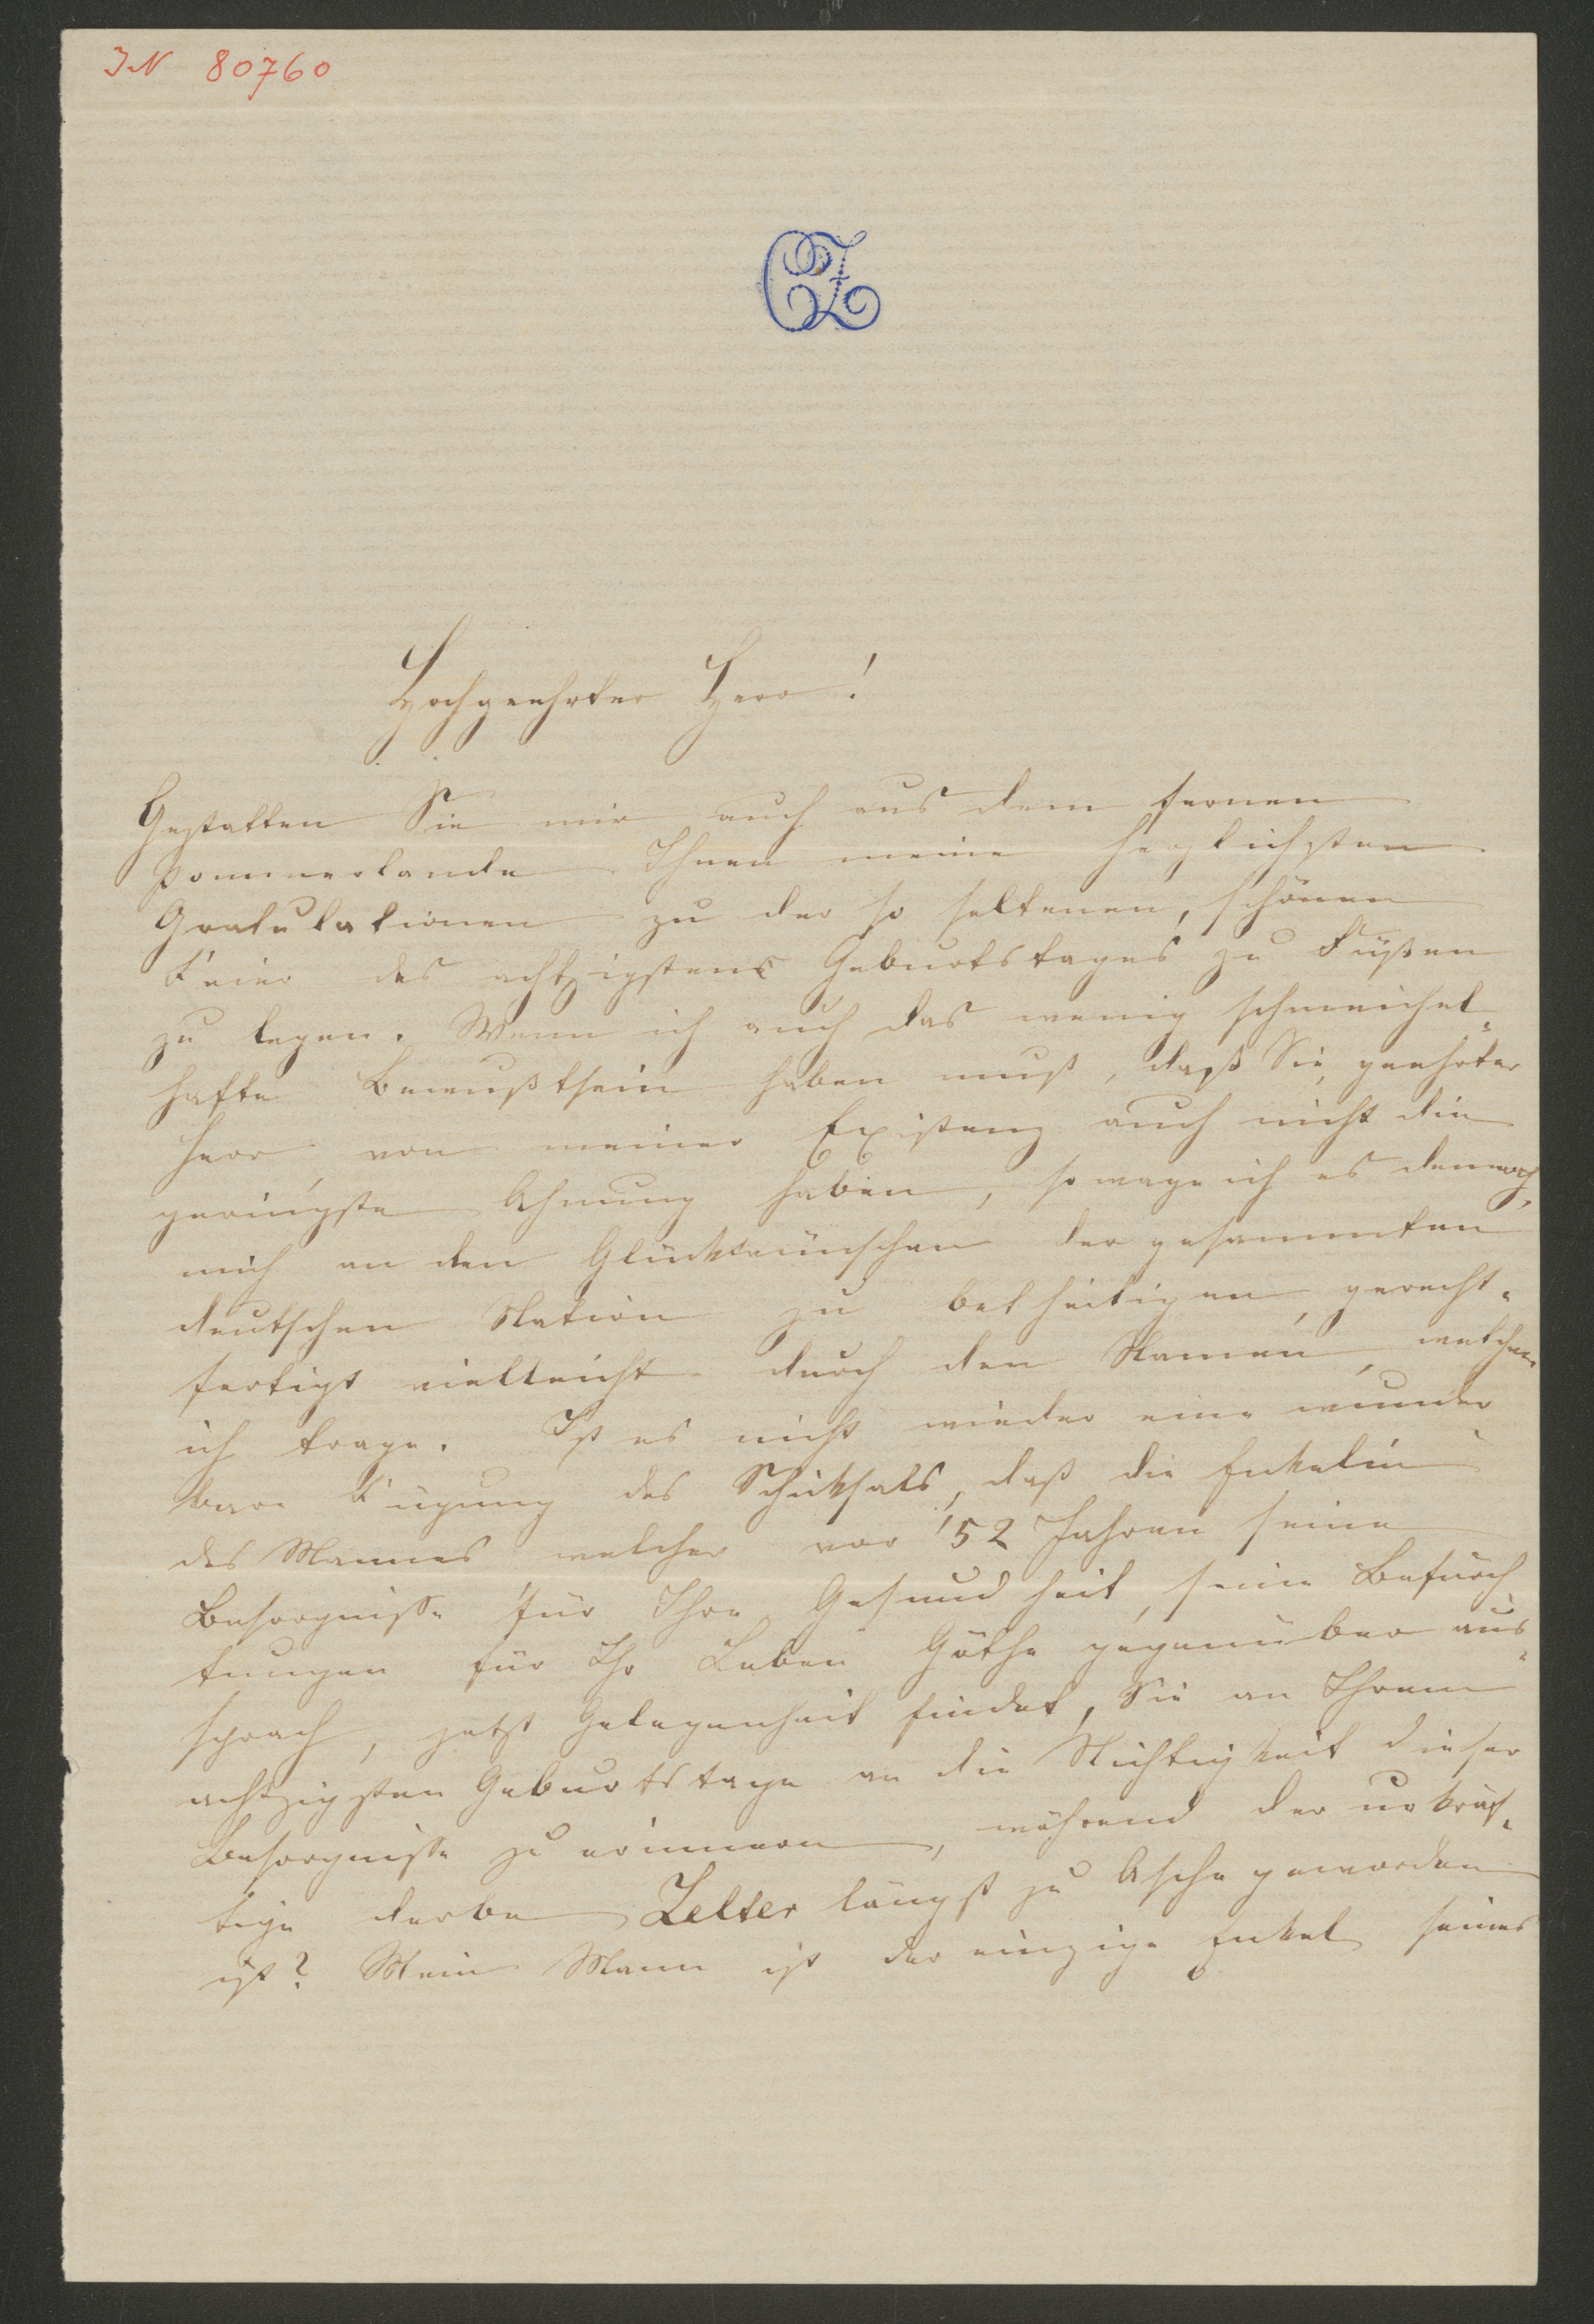 IN 80760
CZ
Hochgeehrter Herr!
Gestatten Sie mir auch aus dem fernen
Pommerlande Ihnen meine herzlichsten
Gratulationen zu der so seltenen, schönen
Feier des achtzigstens Geburtstages zu Füßen
zu legen. Wenn ich auch das wenig schmeichel-
hafte Bewußtsein haben muß, daß Sie, geehrter
Herr von meiner Existenz auch nicht die
geringste Ahnung haben, so wage ich es dennoch,
mich an den Glückwünschen der gesammten
deutschen Nation zu betheiligen, gerecht-
fertigt vielleicht durch den Namen, welchen
ich trage. Ist es nicht wieder eine wunder
bare Fügung des Schicksals, daß die Enkelin
des Mannes welcher vor 52 Jahren seine
Besorgnisse für Ihre Gesundheit, seine Befürch
tungen für Ihr Leben Göthe gegenüber aus-
sprach, jetzt Gelegenheit findet, Sie an Ihrem
achtzigsten Geburtstage an die Nichtigkeit dieser
Besorgnisse zu erinnern, während der urkräf-
tige derbe Zelter längst zu Asche geworden
ist? Mein Mann ist der einzige Enkel seines